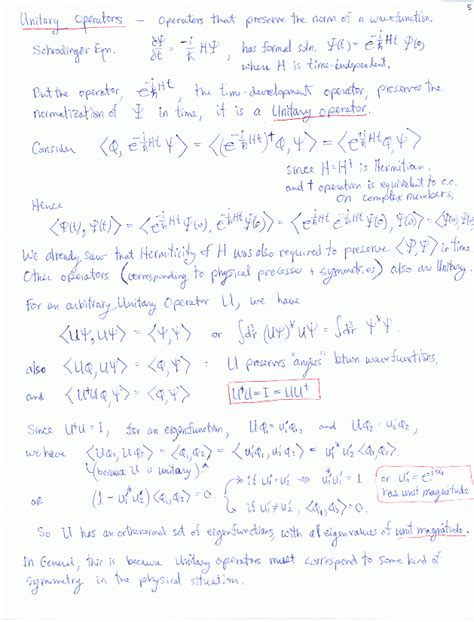 5
Unitary Operators — Operators that preserve the norm of a wavefunction.
Schrodinger Eqn. ∂Ψ/∂t = -i/ħ HΨ, has formal soln. Ψ(t) = e^{-i/ħ Ht} Ψ(0)
where H is time-independent.
But the operator, e^{-i/ħ Ht}, the time-development operator, preserves the
normalization of Ψ in time, it is a Unitary operator.
Consider ⟨Q, e^{-i/ħ Ht} Ψ⟩ = ⟨(e^{-i/ħ Ht})† Q, Ψ⟩ = ⟨e^{+i/ħ Ht} Q, Ψ⟩
since H=H† is Hermitian.
and † operation is equivalent to c.c.
on complex numbers.
Hence
⟨Ψ(t), Ψ(t)⟩ = ⟨e^{-i/ħ Ht} Ψ(0), e^{-i/ħ Ht} Ψ(0)⟩ = ⟨e^{+i/ħ Ht} e^{-i/ħ Ht} Ψ(0), Ψ(0)⟩ = ⟨Ψ(0), Ψ(0)⟩
We already saw that Hermiticity of H was also required to preserve ⟨Ψ,Ψ⟩ in time.
Other operators (corresponding to physical processes + symmetries) also are Unitary.
For an arbitrary Unitary Operator U, we have
⟨UΨ, UΨ⟩ = ⟨Ψ,Ψ⟩ or ∫d³r (UΨ)* UΨ = ∫d³r Ψ*Ψ
also ⟨UQ, UΨ⟩ = ⟨Q,Ψ⟩ : U preserves "angles" btwn wavefunctions.
and ⟨U†UQ,Ψ⟩ = ⟨Q,Ψ⟩ U†U = I = UU†
Since U†U = I, for an eigenfunction, UQ₁ = u₁Q₁ and UQ₂ = u₂Q₂
we have ⟨UQ₁, UQ₂⟩ = ⟨Q₁,Q₂⟩ = ⟨u₁Q₁, u₂Q₂⟩ = u₁*u₂ ⟨Q₁,Q₂⟩
(because U is unitary)
or (1-u₁*u₂)⟨Q₁,Q₂⟩ = 0. if u₁=u₂ ⇒ u₁*u₁ = 1 or
has unit magnitude
if u₁≠u₂, ⟨Q₁,Q₂⟩ = 0.
So U has an orthonormal set of eigenfunctions, with eigenvalues of unit magnitude.
In General, this is because Unitary operators must correspond to some kind of
symmetry in the physical situation.